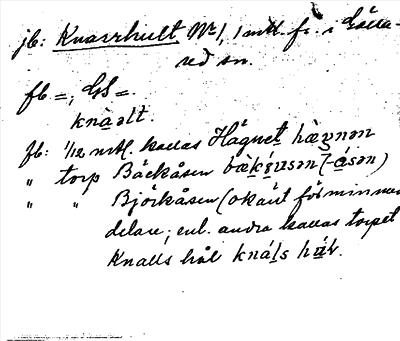 jb: Knarrhult № 1, 1 mtl. fr. i Götta-
red sn.
fb =, GS =.
knàₔlt.
fb: 1/12 mtl. kallas Hägnet hæ̀gnən
" torp Bäckåsen
" " Björkåsen (okänt för min med-
delare; enl. andra kallas torpet
Knalls hål knáls hál.